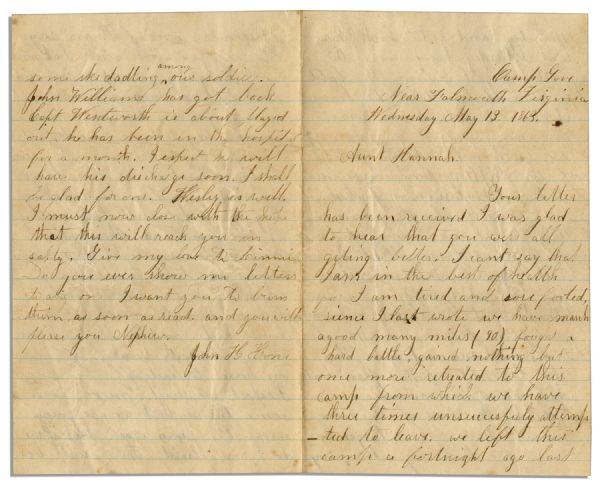 Camp Gove
Near Falmouth Virginia
Wednesday May 13. 1863.
Aunt Hannah.
Your letter
has been received I was glad
to hear that you wer all
geting better. I cant say that
I am in the best of health
I am tired and sore footed,
since I last wrote we have march
a good many miles (90) fough a
hard battle, gained nothing but
once more retreated to this
camp from which we have
three times unsuccessfuly attemp
ted to leave. we left this
camp a fortnight ago last
some skedadling among our soldies.
John Williams has got back
Capt Wentworth is about played
out he has been in the hospital
for a month. I expect he will
have his discharge soon. I shall
be glad for one. Wesley is well.
I must now close with the hope
that this will reach you in
safty. Give my love to
Do you ever show my letters
to any one I want you to burn
them as soon as read. and you will
please you Nephew.
John H